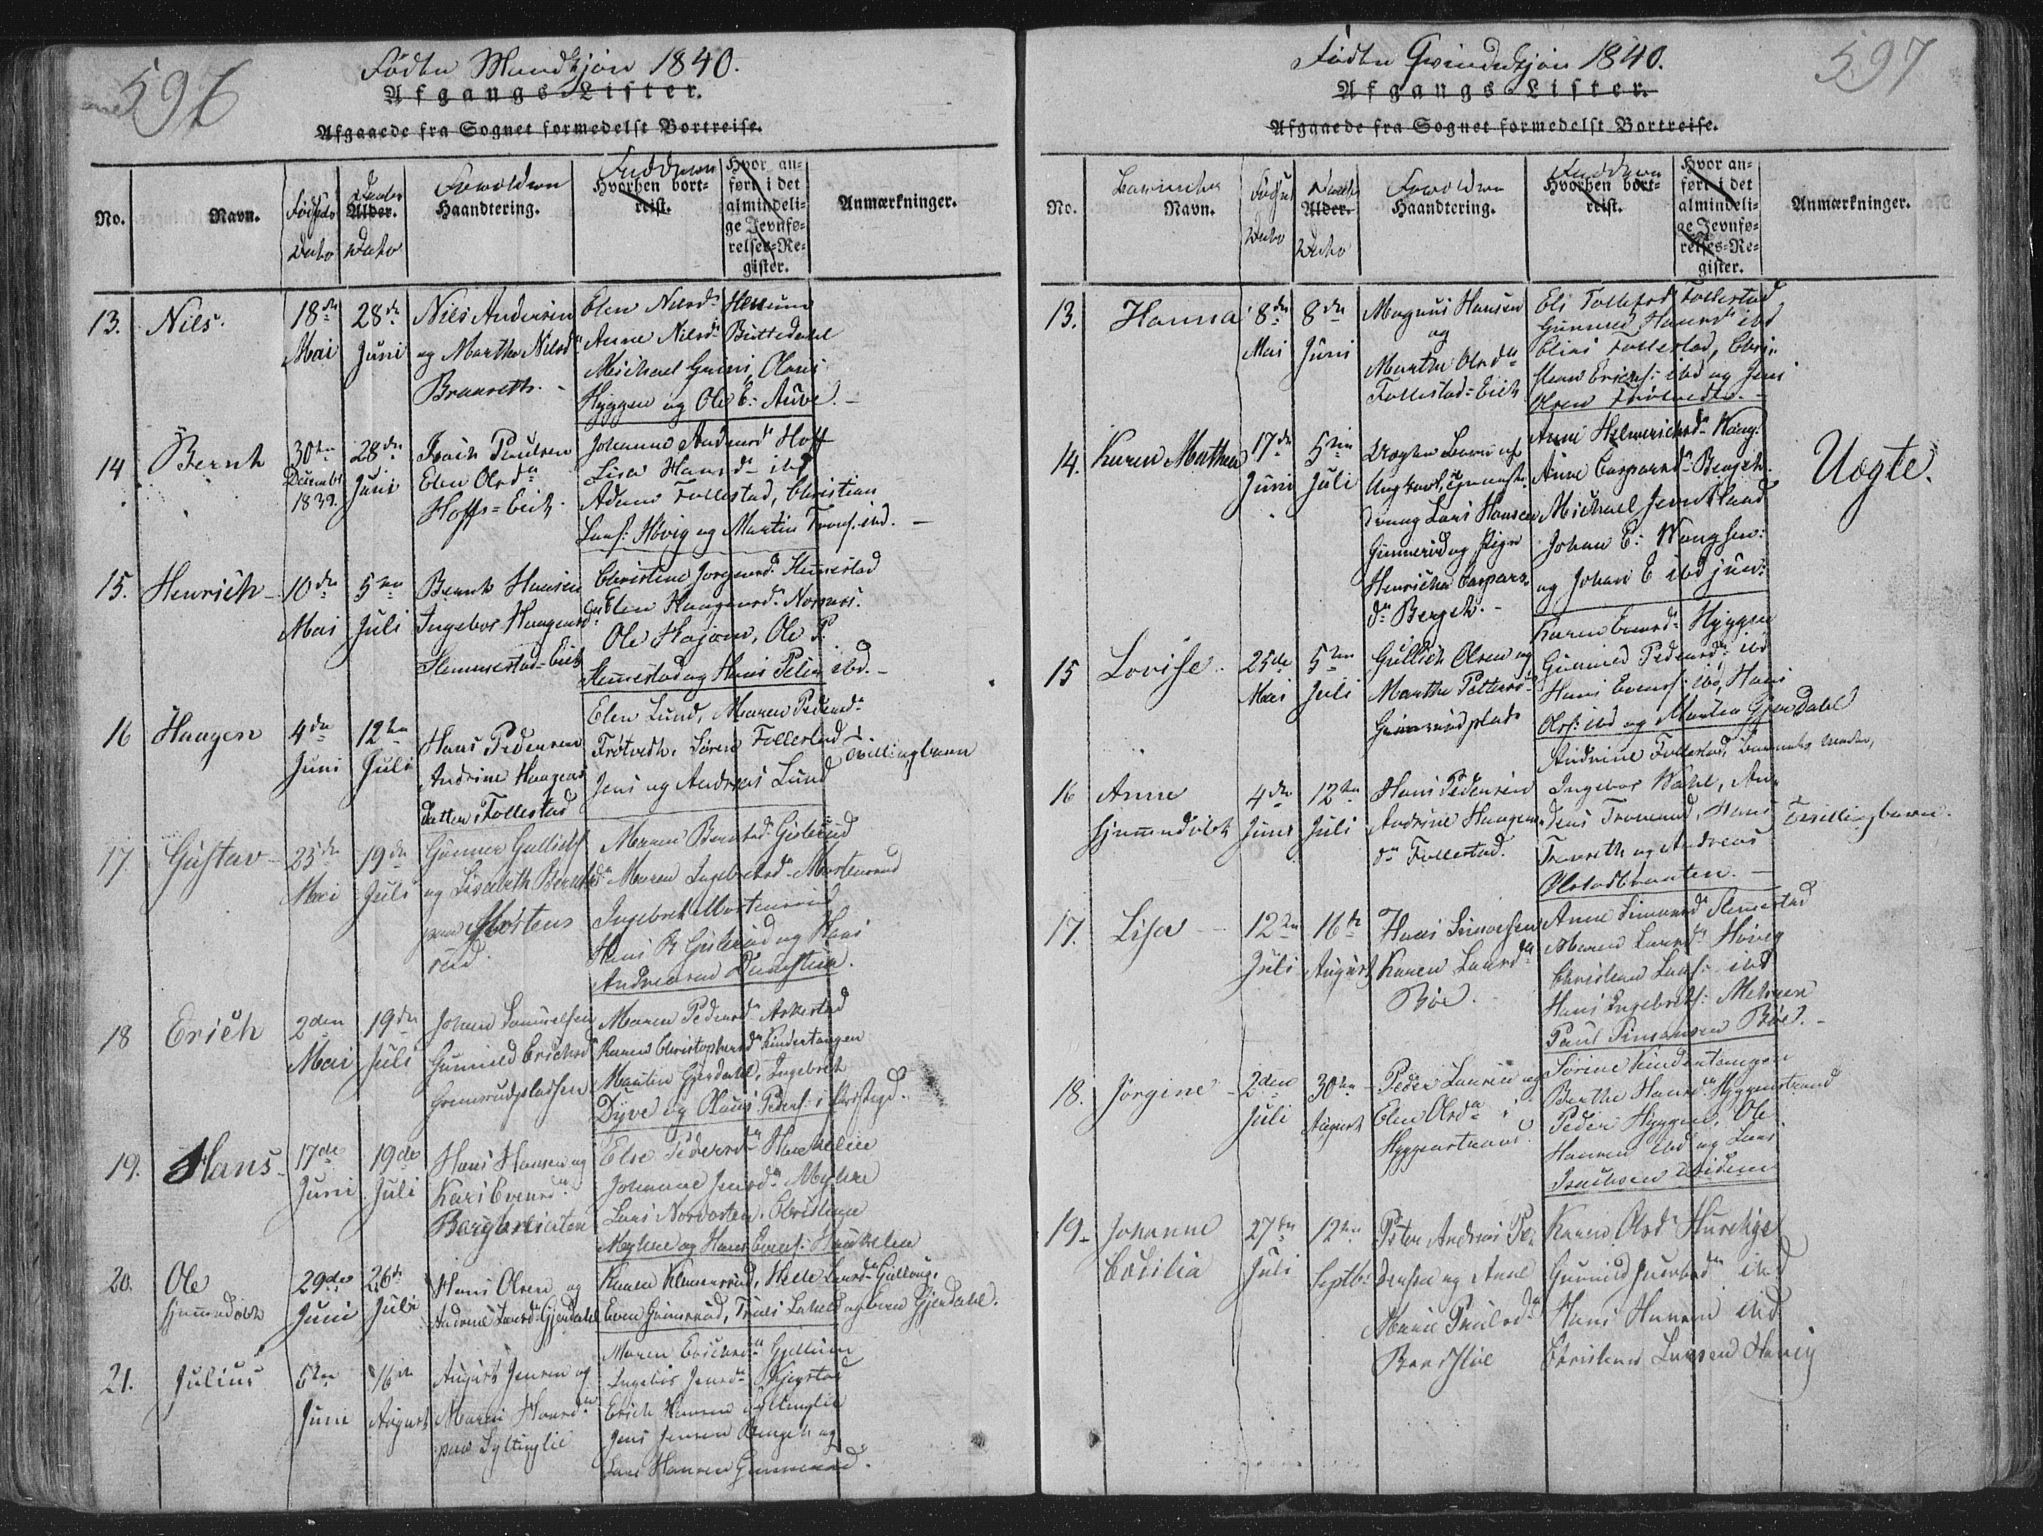 596
Fødte Mandkjøn 1840.
Afgangs Lister.
Afgaaede fra Sognet formedelst Bortreise.
No.
Navn.
Fødsels
Datо
Alder.
Haandtering.
Faddere
Hvorhen bort-
reist.
Hvor an-
ført i det
almindeli-
ge Jevnfø-
relses-Re-
gister.
Anmærkninger.
13. Nils.
18de
Mai
28de
Juni
Nils Andersen
og Marthe Nilsdr
Braaseth.
Elen Nilsdr
Anne Nilsdr
Michael Grini, Olaus
Hyggen og Ole E: Auve.
14 Bernt
30te
Decembr
1839.
28de
Juni
Isach Paulsen
Elen Olsdr
Hoff-Eich.
Johanne Andersdr Hoff
Lisa Hansdr ibd
Adam Follestad, Christian
Larss: Høvig og Martin Tronss. ibd.
15. Henrich
10de
Mai
5te
Juli
Bernt Hansen
Ingebor Haagensdr
Slemmestad-Eich
Christine Jørgensdr Slemestad
Elen Haagensdr Nærsnes.
Ole Højom, Ole P.
Slemestad og Hans Peter ibd.
16 Haagen
4de
Juni
12te
Juli
Hans Pedersen
Andrine Haagens
datter Follestad
Elen Lund, Maren Pedersdr
Trøtvedt, Søren Follestad
Jens og Andreas Lund
Tvillingbarn
17 Gustav
25de
Mai
19de
Juli
Gunner Gulliks
og Lisabeth Berntsdr
paa Mortens
rud.
Maren Berntsdr Gislerud
Maren Ingebretsdr Mortensrud
Ingebret Mortensrud
Hans B Gislerud og Hans
Andreasen
18 Erich
2den
Mai
19de
Juli
Johan Samuelsen
Gunnild Erichsdr
Grimsrudpladsen
Maren Pedersdr Askestad
Karen Christophersdr Kindertangen
Martin Gjerdahl, Ingebret
Dyve og Olaus Peders: i
19. Hans
17de
Juni
19de
Juli
Hans Hansen og
Kari Evensdr
Else Pedersdr
Johanne Jensdr Myhre
Lars Norvosten, Christian
Myhre og Hans Evens:
20. Ole
hjemmedøbt
29de
Juni
26de
Juli
Hans Olsen og
Andrine Larsdr Gjerdahl
Karen Klemetsrud, Helle Larsdr Gullaug,
Even Grimsrud, og Even Gjerdahl.
21. Julius
6te
Juni
16de
August
August Jensen og
Maren Hansdr
paa Syltinglie
Maren Erichsdr Gjellum
Ingebor Jensdr Kjegstad
Erich Hansen Syltinglie
Jens Jensen og
Lars Hansen Gunnerud.
597
Fødte Qvindekjøn 1840.
Afgangs Lister.
Afgaaede fra Sognet formedelst Bortreise.
No.
Barnets
Navn.
Fødsels
Dato
Alder.
Dato
Haandtering.
Faddere
Hvorhen bort-
reist.
Hvor an-
ført i det
almindeli-
ge Jevnfø-
relses-Re-
gister.
Anmærkninger.
13. Hanna
8de
Mai
8de
Juni
Magnus Hansen
og
Marthe Olsdr
Follestad-Eich
Eli Tollefsdr Follestad
Gunnild Hansdr ibd
Elias Follestad, Chri-
stian Erichs: ibd og Jens
Olsen Trøtvedt.
14. Karen Mathea
17de
Juni
5te
Juli
Uægte Barn af
Ungkarl,
dreng Lars Hansen
Gunnerud og Pige
Henriche Caspars-
dr Berget.
Anne Helmerichsdr
Anne Caspersdr Berget.
Michael Jerntland
Johan E:
og Johan E ibd jun:
Uægte.
15 Lovise
25de
Mai
5te
Juli
Gullich Olsen og
Marthe Pettersdr
Grimsrudplads
Karen Evensdr Hyggen
Gunnild Pedersdr ibd
Hans Evens: ibd, Hans
Ols: ibd og Martin Gjerdahl
16 Anne
hjemmedøbt
4de
Juni
12te
Juli
Hans Pedersen
Andrine Haagens-
dr Follestad.
Andrine Follestad, Barnets Moder,
Ingebor Wahl, An-
ders Tronrud, Hans
og Andreas
Olstadbraaten.
Tvillingbarn.
17. Lisa
12te
Juli
16de
August
Hans Simensen
Karen Larsdr
Bøe.
Anne Simensdr Slemestad
Maren Larsdr Høvig
Christian Lars: ibd
Hans Ingebrets:
Paul Simensen Bøe.
18. Jørgine
2den
Juli
30te
August
Peder Larsen og
Elen Olsdr
Hyggenstrand.
Sørine Kindertangen
Berthe Hansdr Hyggenstrand
Peder Hyggen, Ole
Hansen ibd og Lars
Isachsen
19. Johanne
Cecilia
27de
Juli
12te
Septbr:
Peter Andreas Pe-
dersen og Anne
Marie Paulsdr
Karen Olsdr
Gunnild ibd
Hans Hansen ibd
Christian Larsen Høvig